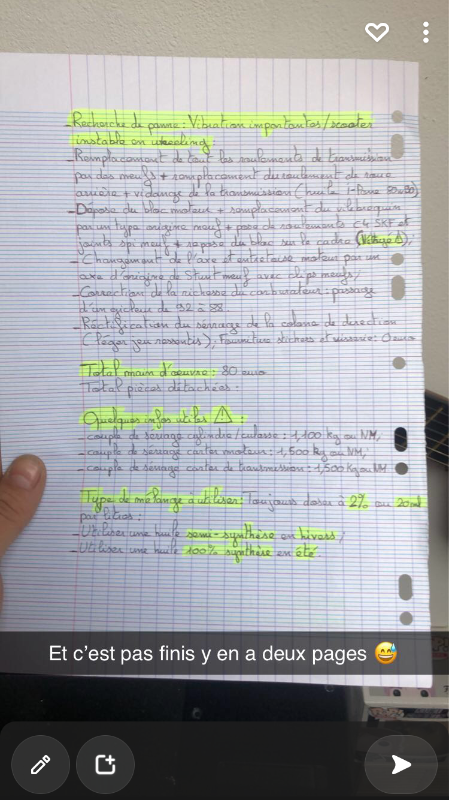 _Recherche de panne: Vibration importantes/scooter
instable en wheeling
_Remplacement de tout les roulements de transmission
par des neufs + remplacement du roulement de roue
arrière + vidange de la transmission (huile
_Dépose du bloc moteur + remplacement du vilebrequin
par un type origine neuf + pose de roulements C4 SKF et
joints spi neuf + repose du bloc sur le cadre
_Changement de l'axe et entretoise moteur par un
axe d'origine de Stunt neuf avec clips neufs,
_Correction de la richesse du carburateur: passage
d'un gicleur de 92 à 88
_Rectification du serrage de la colone de direction
(léger jeu ressentis), Fourniture stickers et visserie: 0 euro
Total main d'oeuvre: 80 euro
Total pièces détachées:
Quelques infos utiles ⚠ :
_couple de serrage cylindre/culasse: 1,100 Kg ou NM,
_couple de serrage carter moteur: 1,500 kg ou NM,
_couple de serrage carter de transmission: 1,500 Kg ou NM
Type de mélange à utiliser: Toujours doser à 2% ou 20ml
par litres:
_Utiliser une huile semi-synthèse en hivers,
_Utiliser une huile 100% synthèse en été.
Et c'est pas finis y en a deux pages 😅